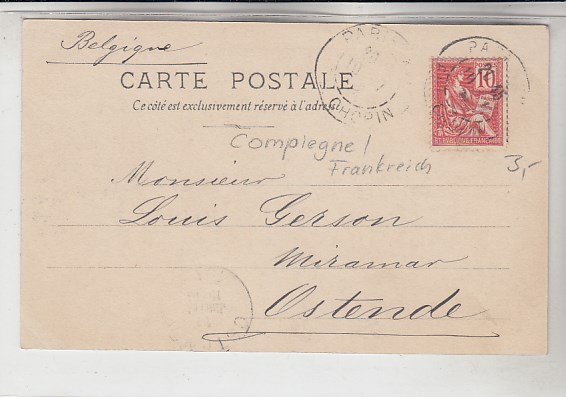 Belgique
CARTE POSTALE
Ce côté est exclusivement réservé à l'adresse
PARIS
CHOPIN
PA
10
Compiegne/
Frankreich
3,-
Monsieur
Louis Gerson
Miramar
Ostende